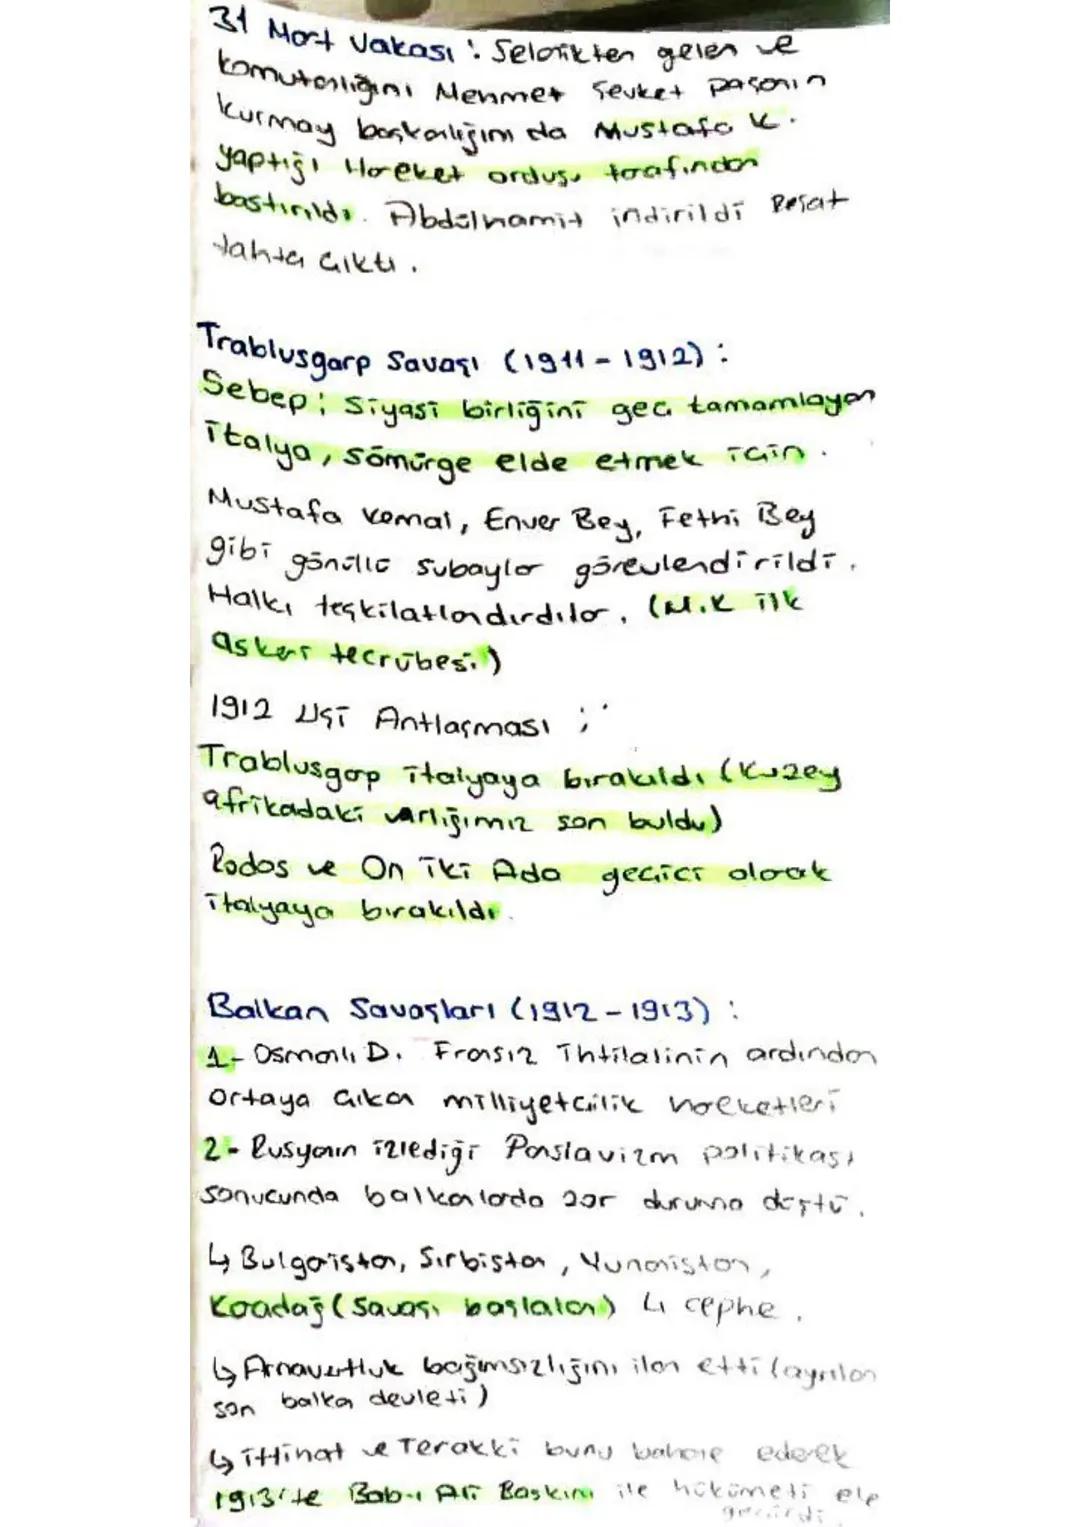 31 Mart Vakası : Selanikten gelen ve
komutanlığını Mehmet Şevket paşanın
kurmay başkanlığını da Mustafa K.
yaptığı Hareket ordusu tarafından
bastırıldı. Abdülhamit indirildi Reşat
tahta çıktı.
Trablusgarp Savaşı (1911-1912) :
Sebep; Siyasi birliğini geç tamamlayan
İtalya, sömürge elde etmek için.
Mustafa Kemal, Enver Bey, Fethi Bey
gibi gönüllü subaylar görevlendirildi.
Halkı teşkilatlandırdılar. (M.K ilk
askeri tecrübesi.)
1912 Uşi Antlaşması ;
Trablusgarp İtalyaya bırakıldı (Kuzey
afrikadaki varlığımız son buldu)
Rodos ve On iki Ada geçici olarak
İtalyaya bırakıldı.
Balkan Savaşları (1912-1913) :
1- Osmanlı D. Fransız ihtilalinin ardından
ortaya çıkan milliyetçilik hareketleri
2- Rusyanın izlediği Panslavizm politikası
sonucunda balkanlarda zor duruma düştü.
↳ Bulgaristan, Sırbistan, Yunanistan,
Karadağ (Savaşı başlatan) 4 cephe.
↳ Arnavutluk bağımsızlığını ilan etti (ayrılan
son balkan devleti)
↳ İttihat ve Terakki bunu bahane ederek
1913'te Bab-ı Ali Baskını ile hükümeti ele
geçirdi.